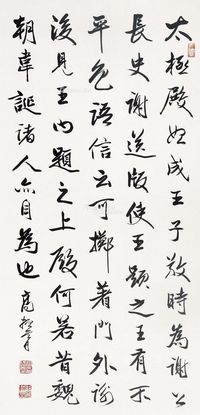 太極殿始成王子敬時為謝公
長史謝送版使王題之王有不
平色語信云可擲著門外謝
後見王曰題之上殿何若昔魏
朝韋誕諸人亦自為也 高振霄